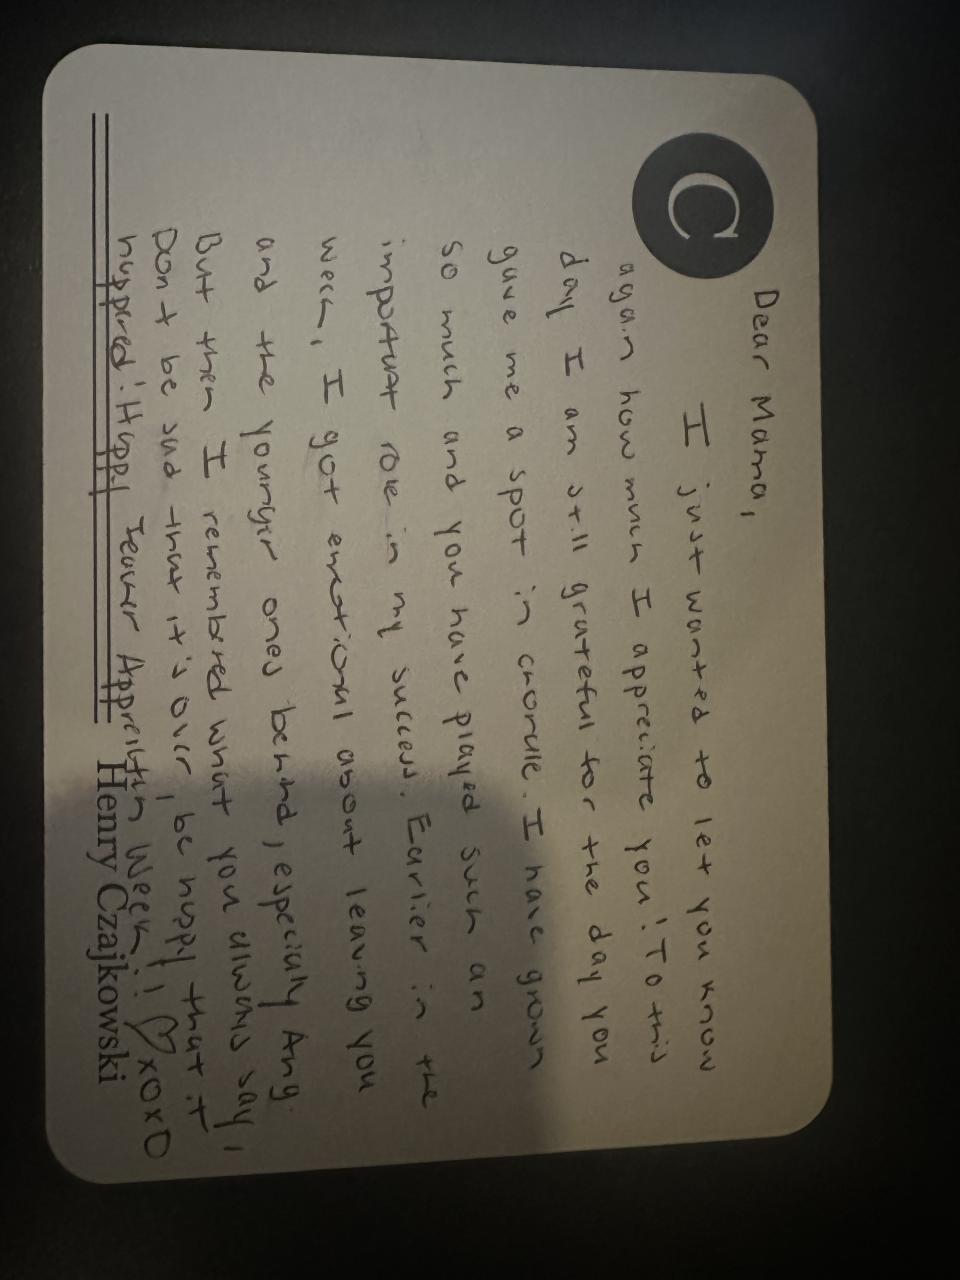 C
Dear Mama,
I just wanted to let you know
again how much I appreciate you! To this
day I am still grateful for the day you
gave me a spot in chorale. I have grown
so much and you have played such an
important role in my success. Earlier in the
week, I got emotional about leaving you
and the younger ones behind, especially Ang.
But then I remembered what you always say,
Don't be sad that it's over, be happy that it
happened! Happy Teacher Appreciation Week! ♡ xoxo
Henry Czajkowski